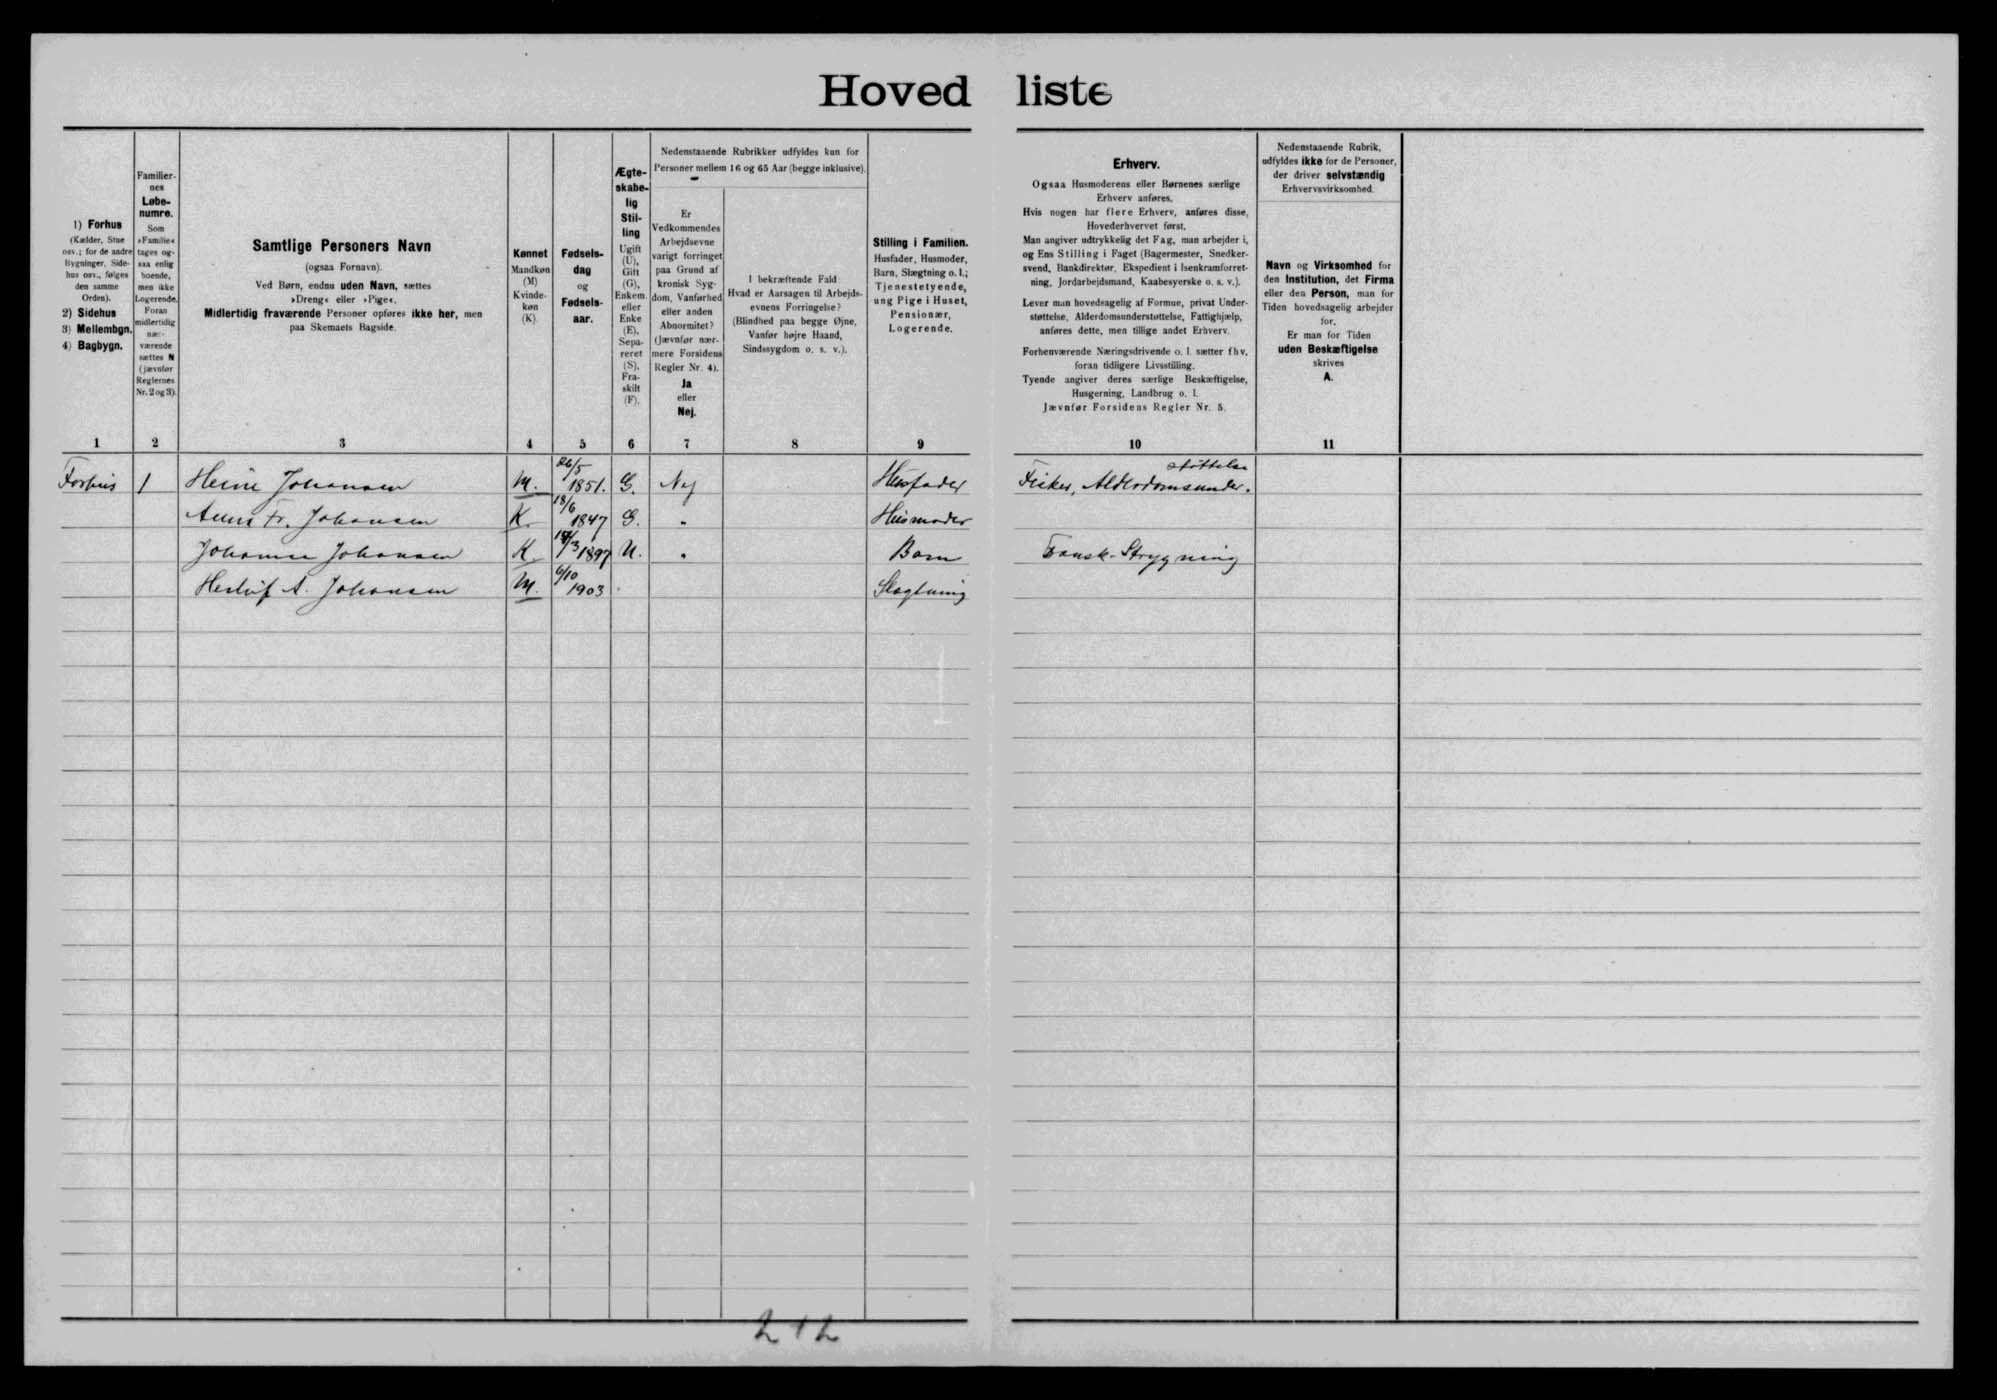 Hovedliste
1) Forhus
(Kælder, Stue
osv.; for de andre
Bygninger, Side-
hus osv., følges
den samme
Orden).
2) Sidehus
3) Mellembgn.
4) Bagbygn.
Familier-
nes
Løbe-
numre.
Som
»Familie«
tages og-
saa enlig
boende,
men ikke
Logerende.
Foran
midlertidig
nær-
værende
sættes N
(jævnfør
Reglernes
Nr. 2 og 3).
Samtlige Personers Navn
(ogsaa Fornavn).
Ved Børn, endnu uden Navn, sættes
»Dreng« eller »Pige«.
Midlertidig fraværende Personer opføres ikke her, men
paa Skemaets Bagside.
Kønnet
Mandkøn
(M)
Kvinde-
køn
(K).
Fødsels-
dag
og
Fødsels-
aar.
Ægte-
skabe-
lig
Stil-
ling
Ugift
(U),
Gift
(G),
Enkem.
eller
Enke
(E),
Sepa-
reret
(S),
Fra-
skilt
(F).
Nedenstaaende Rubrikker udfyldes kun for
Personer mellem 16 og 65 Aar (begge inklusive).
Er
Vedkommendes
Arbejdsevne
varigt forringet
paa Grund af
kronisk Syg-
dom, Vanførhed
eller anden
Abnormitet?
(Jævnfør nær-
mere Forsidens
Regler Nr. 4).
Ja
eller
Nej.
I bekræftende Fald
Hvad er Aarsagen til Arbejds-
evnens Forringelse?
(Blindhed paa begge Øjne,
Vanfør højre Haand,
Sindssygdom o. s. v.).
Stilling i Familien.
Husfader, Husmoder,
Barn, Slægtning o. l.;
Tjenestetyende,
ung Pige i Huset,
Pensionær,
Logerende.
Erhverv.
Ogsaa Husmoderens eller Børnenes særlige
Erhverv anføres.
Hvis nogen har flere Erhverv, anføres disse,
Hovederhvervet først.
Man angiver udtrykkelig det Fag, man arbejder i,
og Ens Stilling i Faget (Bagermester, Snedker-
svend, Bankdirektør, Ekspedient i Isenkramforret-
ning, Jordarbejdsmand, Kaabesyerske o. s. v.).
Lever man hovedsagelig af Formue, privat Under-
støttelse, Alderdomsunderstøttelse, Fattighjælp,
anføres dette, men tillige andet Erhverv.
Forhenværende Næringsdrivende o. l. sætter fhv.
foran tidligere Livsstilling.
Tyende angiver deres særlige Beskæftigelse,
Husgerning, Landbrug o. l.
Jævnfør Forsidens Regler Nr. 5.
Nedenstaaende Rubrik,
udfyldes ikke for de Personer,
der driver selvstændig
Erhvervsvirksomhed.
Navn og Virksomhed for
den Institution, det Firma
eller den Person, man for
Tiden hovedsagelig arbejder
for.
Er man for Tiden
uden Beskæftigelse
skrives
A.
1 2 3 4 5 6 7 8 9 10 11
Forhus 1 Heine Johansen M. 26/5 1851. G. Nej Husfader Fisker, Alderdomsunder. støttelse
Fr. Johansen K. 18/6 1847 G. " Husmoder
Johanne Johansen K. /3 1897 U. " Barn Fransk-Strygning
A. Johansen M. 6/10 1903 Slægtning
2 + 2